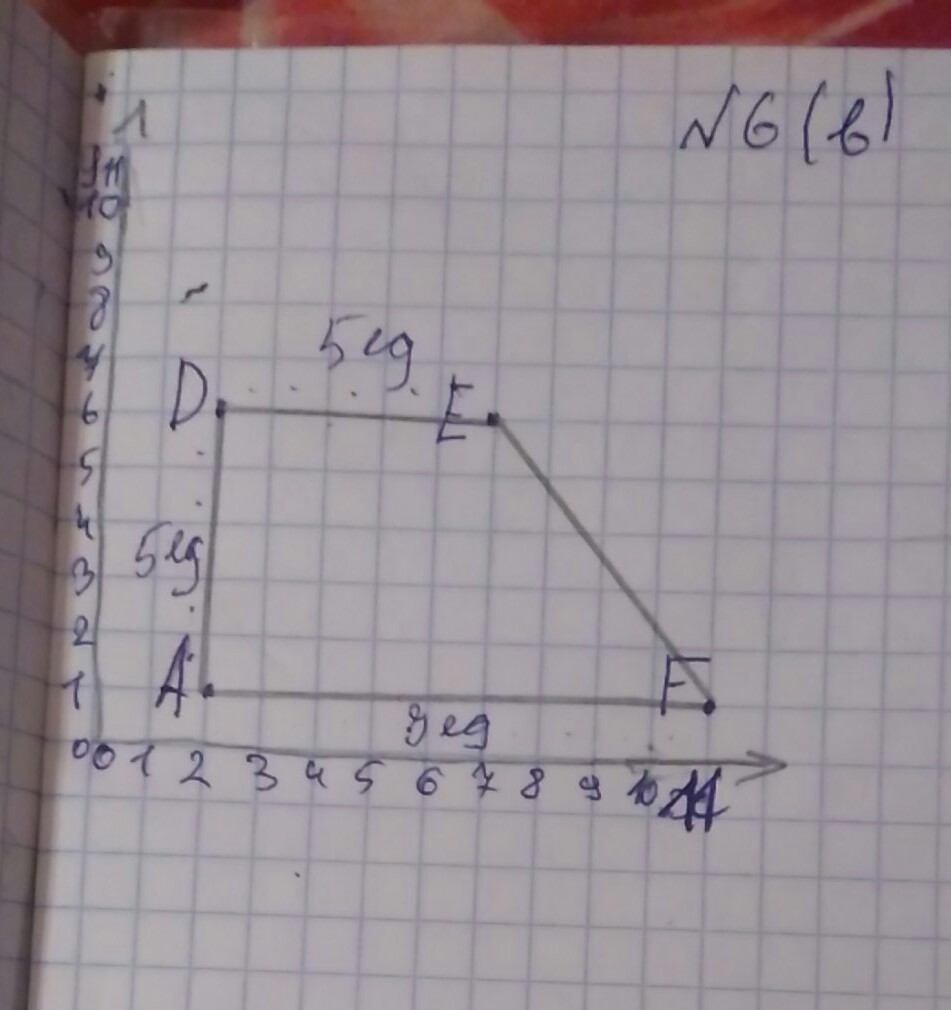 №6(в)
11
10
9
8
7
6
5
4
3
2
1
0
5 ед.
D
E
5ед
A
F
9ед
0 1 2 3 4 5 6 7 8 9 10 11